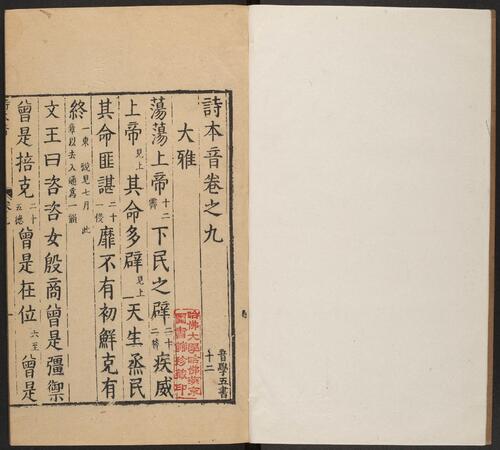 詩本音卷之九
大雅
蕩蕩上帝十二霽下民之辟二十二昔疾威
上帝見上其命多辟見上天生烝民
其命匪諶二十一侵靡不有初鮮克有
終一東說見七月此章以去入通爲一韻
文王曰咨咨女殷商曾是彊禦
曾是掊克二十五德曾是在位六至曾是
音學五書
十二
哈佛大學哈佛燕京
圖書館珍藏印